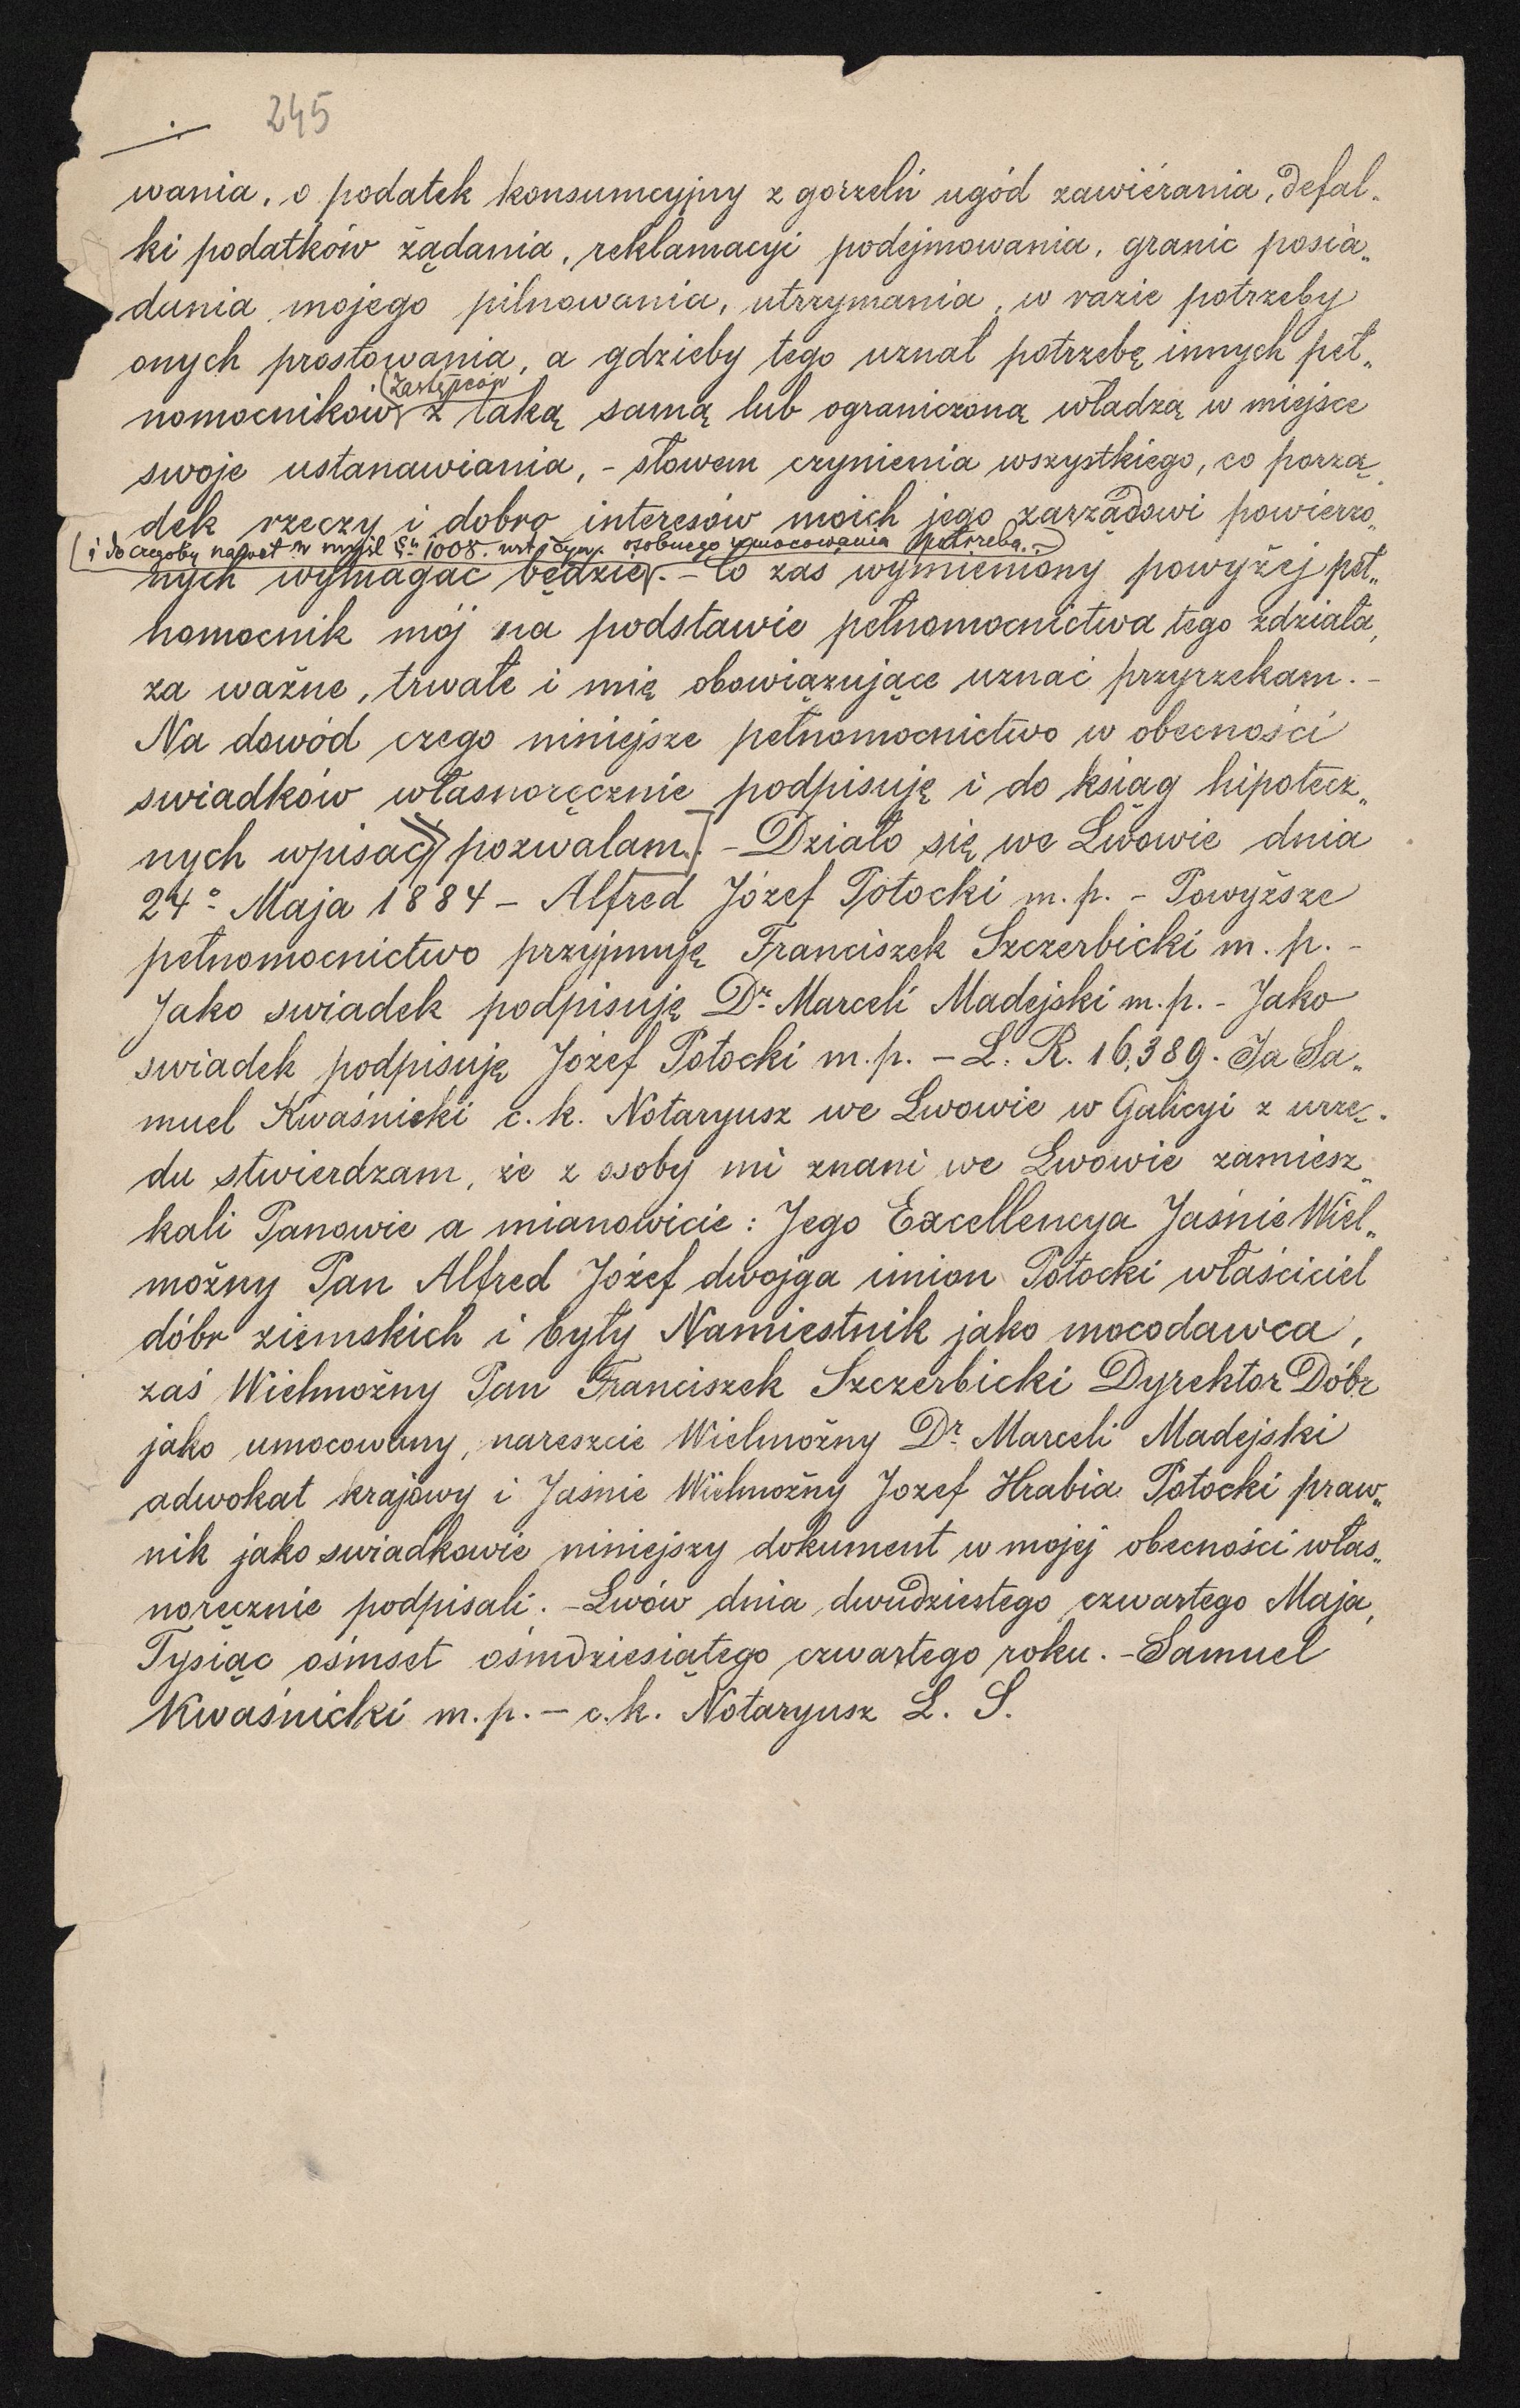 245
wania, o podatek konsumcyjny z gorzelń ugód zawiérania, defal„
ki podatków żądania, reklamacyi podejmowania, granic posia„
dania mojego pilnowania, utrzymania, w razie potrzeby
onych prostowania, a gdzieby tego uznał potrzebę innych peł„
zastępców
nomocników z taką samą lub ograniczoną władzą w miejsce
swoje ustanawiania, - słowem czynienia wszystkiego, co porzą„
dek rzeczy i dobro interesów moich jego zarządowi powierzo„
i do czegoby nawet w myśl §u 1008. ust. cyw. osobnego umocowania potrzeba. -
nych wymagać będzie. - Co zaś wymieniony powyżéj peł„
nomocnik mój na podstawie pełnomocnictwa tego zdziała,
za ważne, trwałe i mię obowiązujące uznać przyrzekam. -
Na dowód czego niniejsze pełnomocnictwo w obecności
swiadków własnoręcznie podpisuję i do ksiąg hipotecz„
nych wpisać pozwalam. - Działo się we Lwowie dnia
24º Maja 1884 - Alfred Józef Potocki m. p. - Powyższe
pełnomocnictwo przyjmuję Franciszek Szczerbicki m. p. -
Jako swiadek podpisuję Dr. Marceli Madejski m. p. - Jako
swiadek podpisuję Józef Potocki m. p. - L. R. 16,389. Ja Sa„
muel Kwaśnicki c. k. Notaryusz we Lwowie w Galicyi z urzę„
du stwierdzam, że z osoby mi znani we Lwowie zamiesz„
kali Panowie a mianowicie : Jego Excellencya Jaśnie Wiel„
możny Pan Alfred Józef dwojga imion Potocki właściciel
dóbr ziemskich i były Namiestnik jako mocodawca,
zaś Wielmożny Pan Franciszek Szczerbicki Dyrektor Dóbr
jako umocowany, nareszcie Wielmożny Dr. Marceli Madejski
adwokat krajowy i Jaśnie Wielmożny Jozef Hrabia Potocki praw„
nik jako swiadkowie niniejszy dokument w mojéj obecności włas„
noręcznie podpisali. - Lwów dnia dwudziestego czwartego Maja,
Tysiąc ośmset ośmdziesiątego czwartego roku. - Samuel
Kwaśnicki m. p. - c. k. Notaryusz L. S.